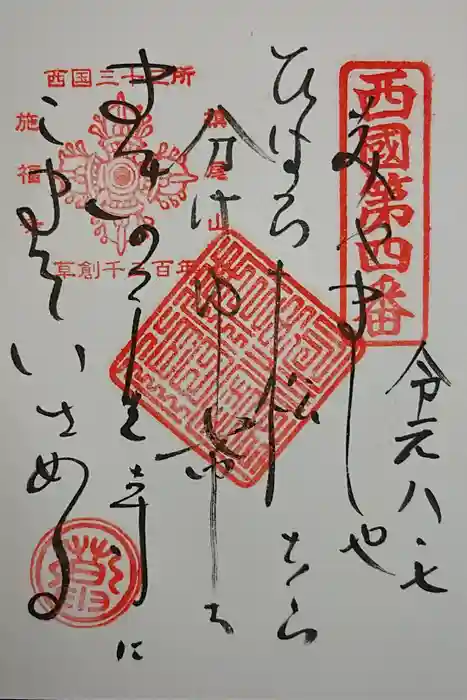 西國第四番
美やましや
令元八.七
ひはら松はら
分け
まきのを寺に
こまそいさめる
西国三十三所
槇尾山
施福寺
草創千三百年